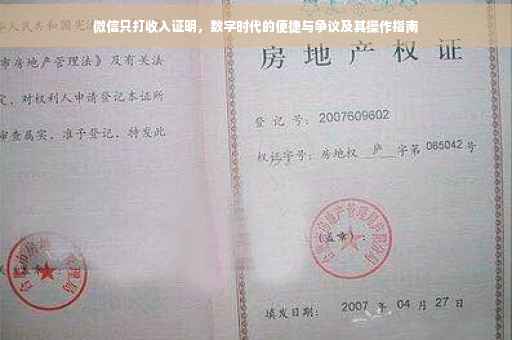 微信只打收入证明，数字时代的便捷与争议及其操作指南
人民共和国宪
市房地产管理法》及有关法
定，对权利人申请登记本证所
审查属实，准予登记，特发此
房地产权证
登记号：2007609602
权证字号：房地权 庐 字第 065042 号
(盖章)：
填发日期：2007 年 04 月 27 日